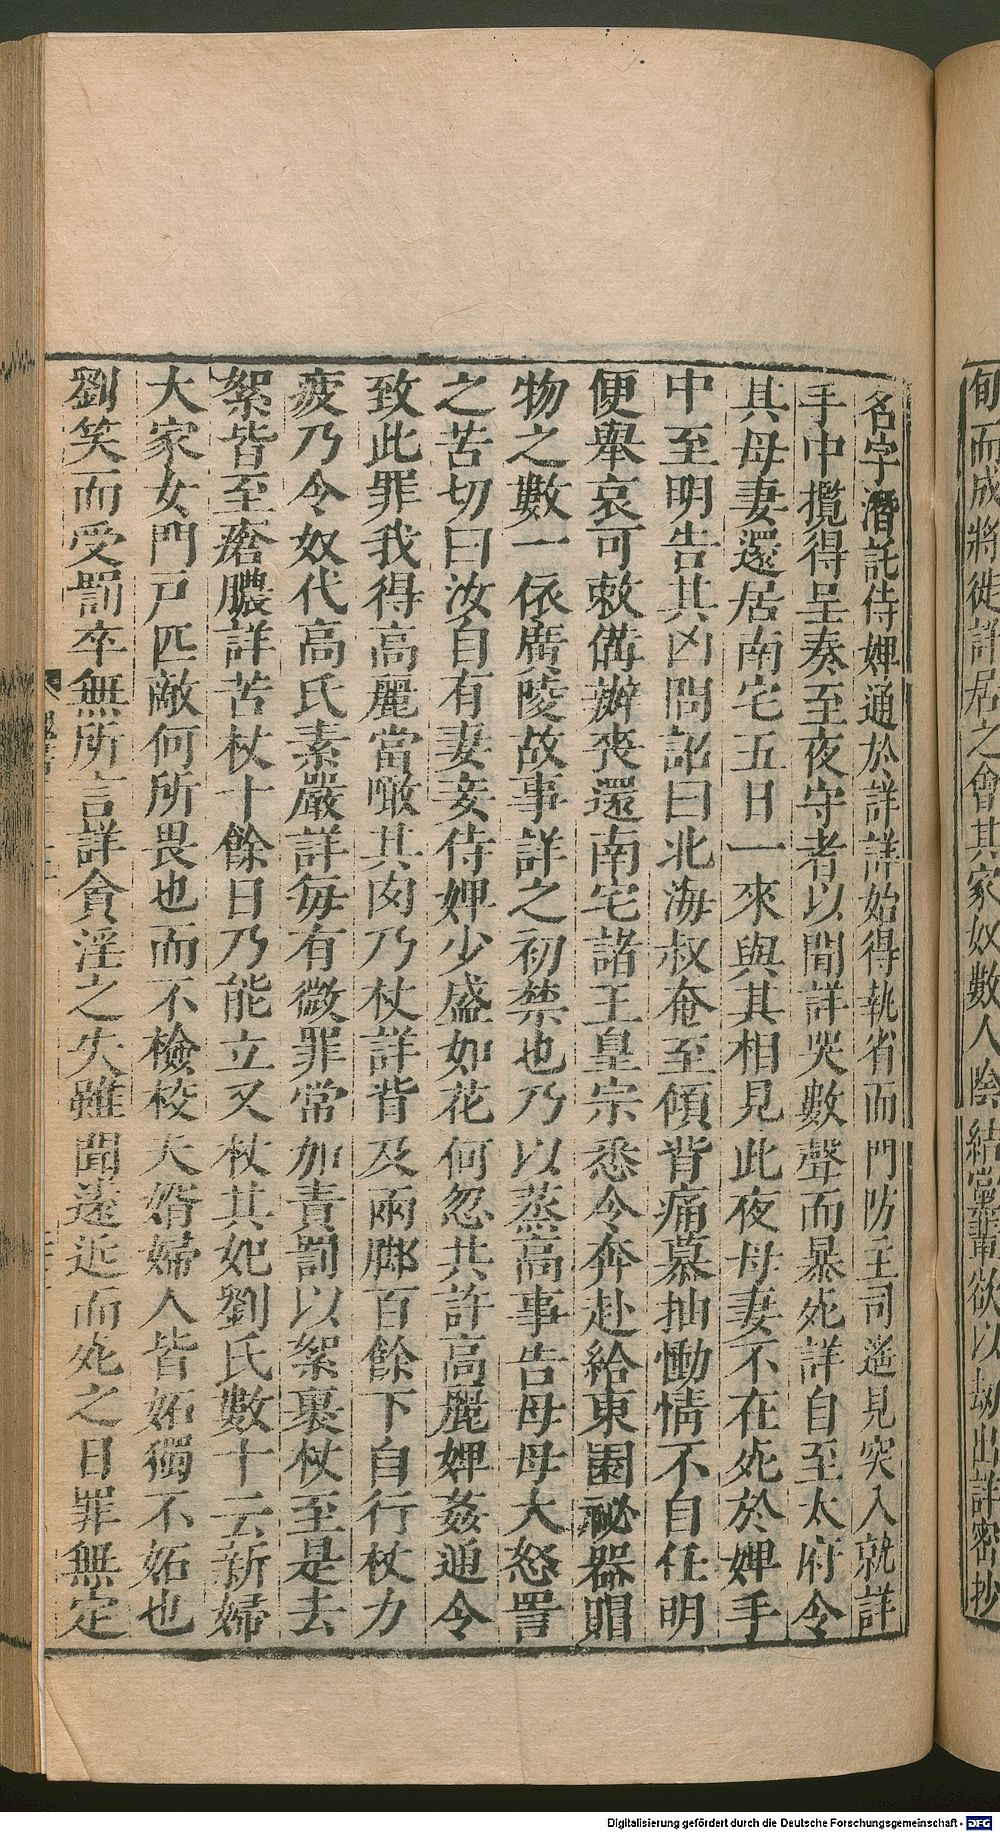 旬而成將徙詳居之會其家奴數人陰結黨輩欲以劫出詳密抄
名字潛託侍婢通於詳詳始得執省而門防主司遙見突入就詳
手中攬得呈奏至夜守者以聞詳哭數聲而暴死詳自至太府令
其母妻還居南宅五日一來與其相見此夜母妻不在死於婢手
中至明告其凶問詔曰北海叔奄至傾背痛慕抽慟情不自任明
便舉哀可敕備辦喪還南宅諸王皇宗悉令奔赴給東園祕器賵
物之數一依廣陵故事詳之初禁也乃以蒸高事告母母大怒詈
之苦切曰汝自有妻妾侍婢少盛如花何忽共許高麗婢姦通令
致此罪我得高麗當噉其肉乃杖詳背及兩腳百餘下自行杖力
疲乃令奴代高氏素嚴詳每有微罪常加責罰以絮裹杖至是去
絮皆至瘡膿詳苦杖十餘日乃能立又杖其妃劉氏數十云新婦
大家女門戶匹敵何所畏也而不檢校夫婿婦人皆妬獨不妬也
劉笑而受罰卒無所言詳貪淫之失雖聞遠近而死之日罪無定
Digitalisierung gefördert durch die Deutsche Forschungsgemeinschaft - DFG